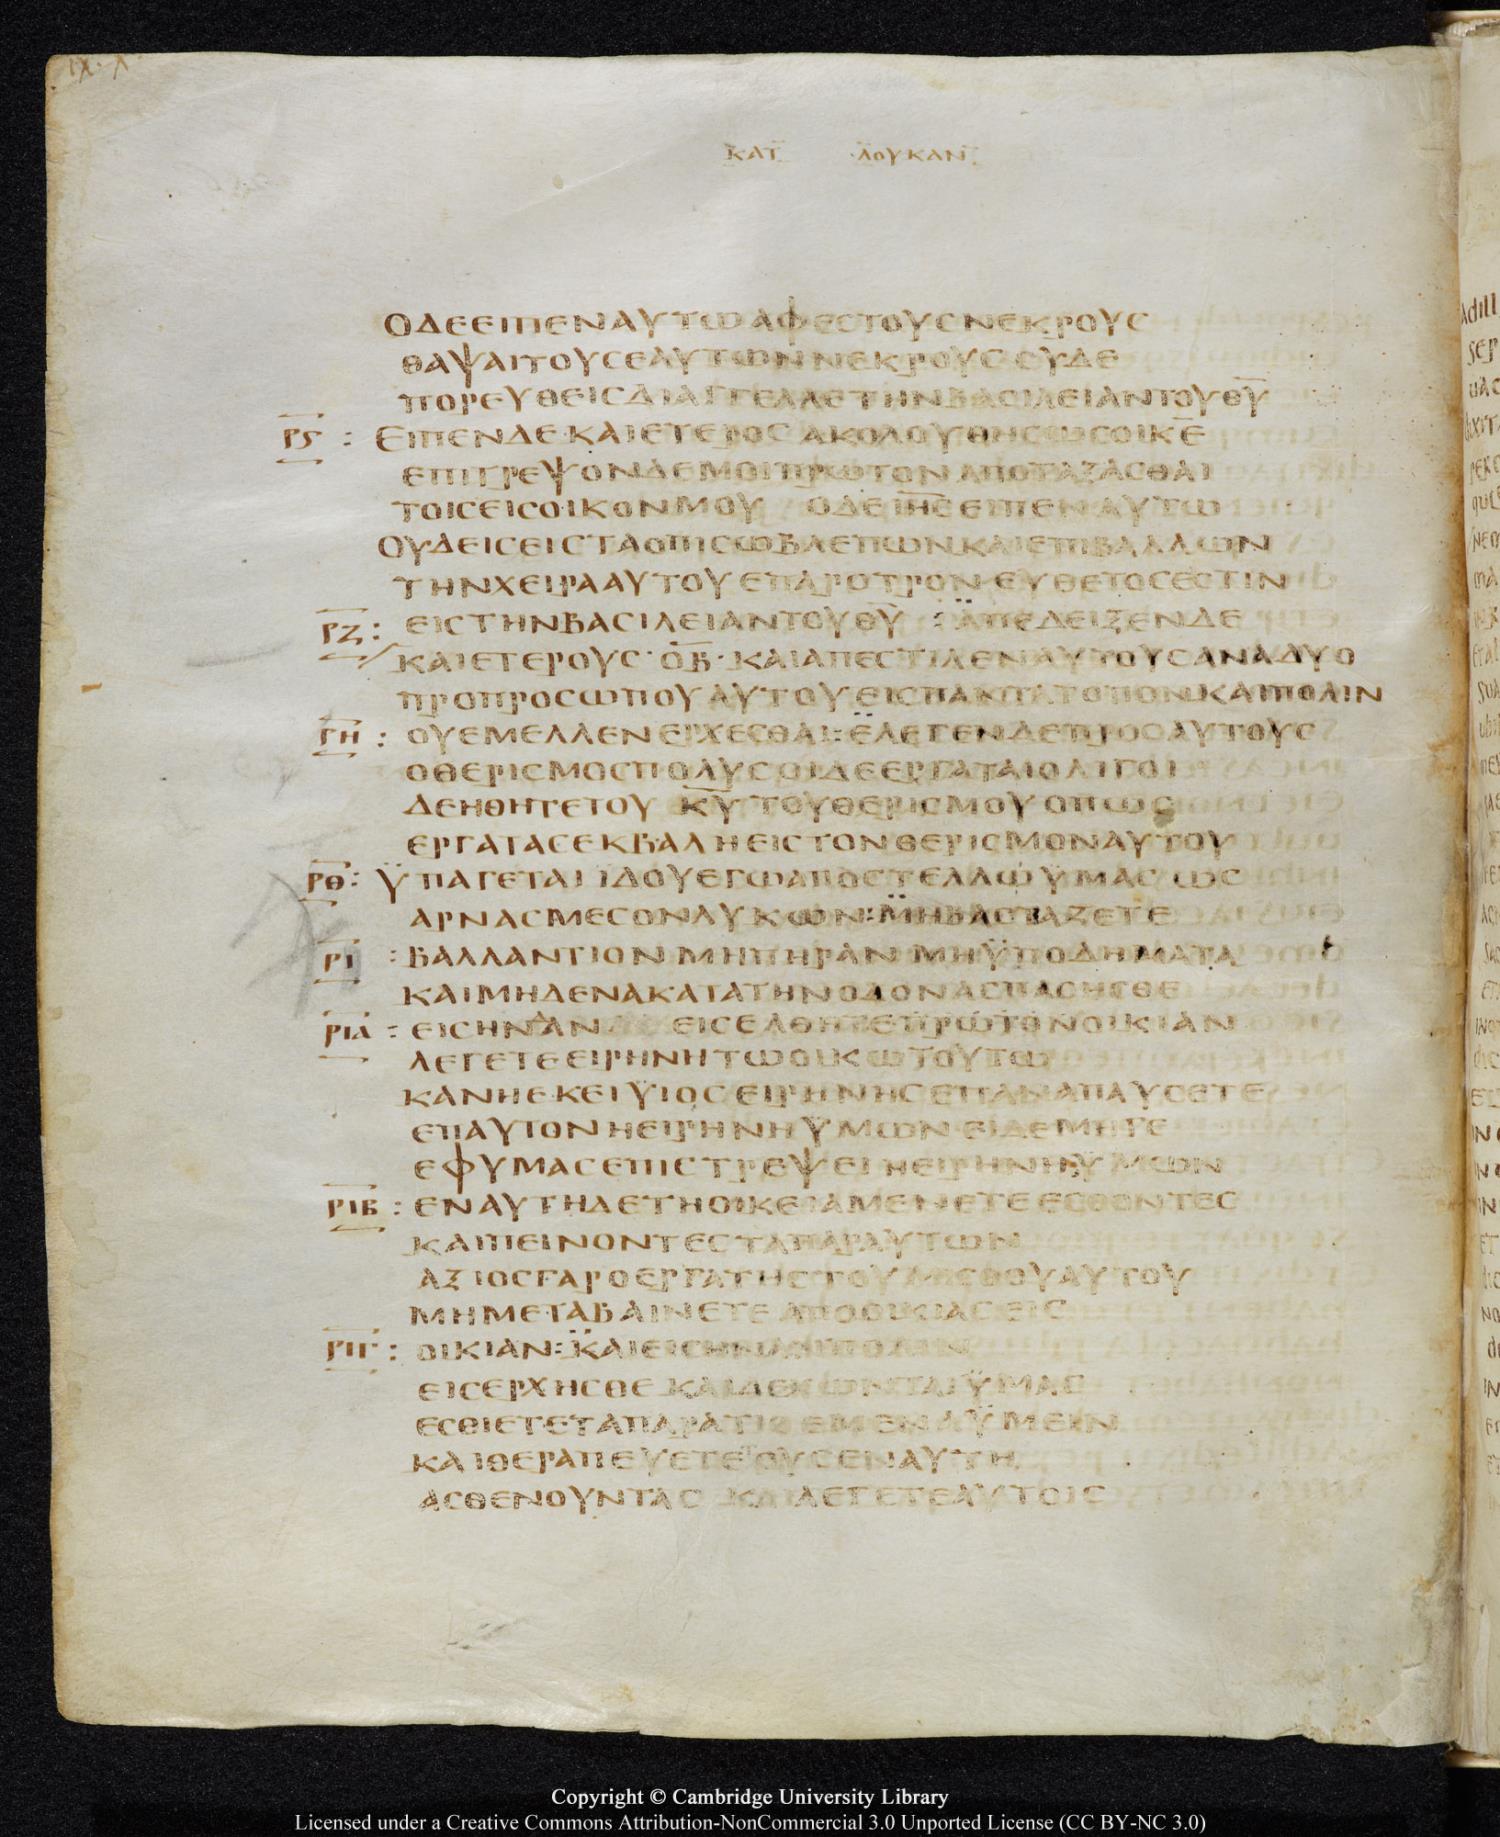 ΚΑΤ ΛΟΥΚΑΝ
ΟΔΕΕΙΠΕΝΑΥΤΩΑΦΕСΤΟΥСΝΕΚΡΟΥС
ΘΑΨΑΙΤΟΥСΕΑΥΤΩΝΝΕΚΡΟΥС СΥΔΕ
ΠΟΡΕΥΘΕΙСΔΙΑΓΓΕΛΛΕΤΗΝΒΑСΙΛΕΙΑΝΤΟΥΘΥ
ΡϚ : ΕΙΠΕΝΔΕ·ΚΑΙΕΤΕΡΟС ΑΚΟΛΟΥΘΗСΩСΟΙΚΕ
ΕΠΙΤΡΕΨΟΝΔΕΜΟΙΠΡΩΤΟΝΑΠΟΤΑΞΑСΘΑΙ
ΤΟΙСΕΙСΟΙΚΟΝΜΟΥ ΟΔΕΙΗСΕΙΠΕΝΑΥΤΩ
ΟΥΔΕΙСΕΙСΤΑΟΠΙСΩΒΛΕΠΩΝΚΑΙΕΠΙΒΑΛΛΩΝ
ΤΗΝΧΕΙΡΑΑΥΤΟΥΕΠΑΡΟΤΡΟΝΕΥΘΕΤΟСΕСΤΙΝ
ΡΖ : ΕΙСΤΗΝΒΑСΙΛΕΙΑΝΤΟΥΘΥ : ΑΠΕΔΕΙΞΕΝΔΕ
ΚΑΙΕΤΕΡΟΥС·ΟΒ·ΚΑΙΑΠΕСΤΙΛΕΝΑΥΤΟΥСΑΝΑΔΥΟ
ΠΡΟΠΡΟСΩΠΟΥΑΥΤΟΥΕΙСΠΑΝΤΑΤΟΠΟΝΚΑΙΠΟΛΙΝ
ΡΗ : ΟΥΕΜΕΛΛΕΝΕΡΧΕСΘΑΙ:ΕΛΕΓΕΝΔΕΠΡΟСΑΥΤΟΥС
ΟΘΕΡΙСΜΟСΠΟΛΥСΟΙΔΕΕΡΓΑΤΑΙΟΛΙΓΟΙ
ΔΕΗΘΗΤΕΤΟΥ ΚΥ ΤΟΥΘΕΡΙСΜΟΥΟΠΩС
ΕΡΓΑΤΑСΕΚΒΑΛΗΕΙСΤΟΝΘΕΡΙСΜΟΝΑΥΤΟΥ
ΡΘ : ΫΠΑΓΕΤΑΙ ΙΔΟΥΕΓΩΑΠΟСΤΕΛΛΩΫΜΑС ΩС
ΑΡΝΑСΜΕСΟΝΛΥΚΩΝ:ΜΗΒΑСΤΑΖΕΤΕ
ΡΙ : ΒΑΛΛΑΝΤΙΟΝΜΗΠΗΡΑΝΜΗΫΠΟΔΗΜΑΤΑ
ΚΑΙΜΗΔΕΝΑΚΑΤΑΤΗΝΟΔΟΝΑСΠΑСΗСΘΕ
ΡΙΑ : ΕΙСΗΝΑΝ ΕΙСΕΛΘΗΤΕΠΡΩΤΟΝΟΙΚΙΑΝ
ΛΕΓΕΤΕΕΙΡΗΝΗΤΩΟΙΚΩΤΟΥΤΩ
ΚΑΝΗΕΚΕΙΫΙΟСΕΙΡΗΝΗСΕΠΑΝΑΠΑΥСΕΤΕ
ΕΠΑΥΤΟΝΗΕΙΡΗΝΗΫΜΩΝ ΕΙΔΕΜΗΓΕ
ΕΦΥΜΑСΕΠΙСΤΡΕΨΕΙΗΕΙΡΗΝΗΫΜΩΝ
ΡΙΒ : ΕΝΑΥΤΗΔΕΤΗΟΙΚΕΙΑΜΕΝΕΤΕΕСΘΟΝΤΕС
ΚΑΙΠΕΙΝΟΝΤΕСΤΑΠΑΡΑΥΤΩΝ
ΑΞΙΟСΓΑΡΟΕΡΓΑΤΗСΤΟΥΜΙСΘΟΥΑΥΤΟΥ
ΜΗΜΕΤΑΒΑΙΝΕΤΕΑΠΟΟΙΚΙΑСΕΙС
ΡΙΓ : ΟΙΚΙΑΝ:ΚΑΙΕΙСΗΝΑΝΠΟΛΙΝ
ΕΙСΕΡΧΗСΘΕΚΑΙΔΕΧΩΝΤΑΙΫΜΑС
ΕСΘΙΕΤΕΤΑΠΑΡΑΤΙΘΕΜΕΝΑΫΜΕΙΝ
ΚΑΙΘΕΡΑΠΕΥΕΤΕΤΟΥСΕΝΑΥΤΗ
ΑСΘΕΝΟΥΝΤΑС ΚΑΙΛΕΓΕΤΕΑΥΤΟΙС
Copyright © Cambridge University Library
Licensed under a Creative Commons Attribution-NonCommercial 3.0 Unported License (CC BY-NC 3.0)